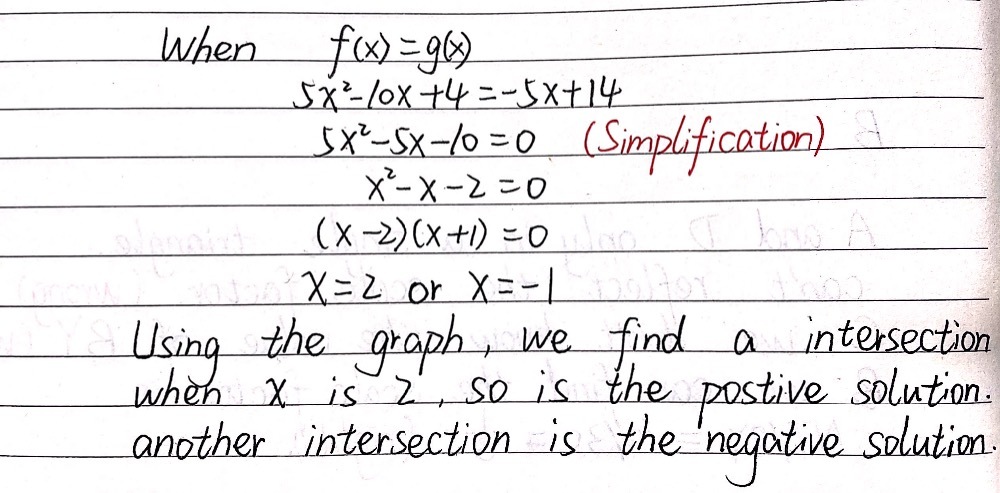 When f(x)=g(x)
5x²-10x+4=-5x+14
5x²-5x-10=0 (Simplification)
x²-x-2=0
(x-2)(x+1)=0
x=2 or x=-1
Using the graph, we find a intersection
when x is 2, so is the postive solution.
another intersection is the negative solution.